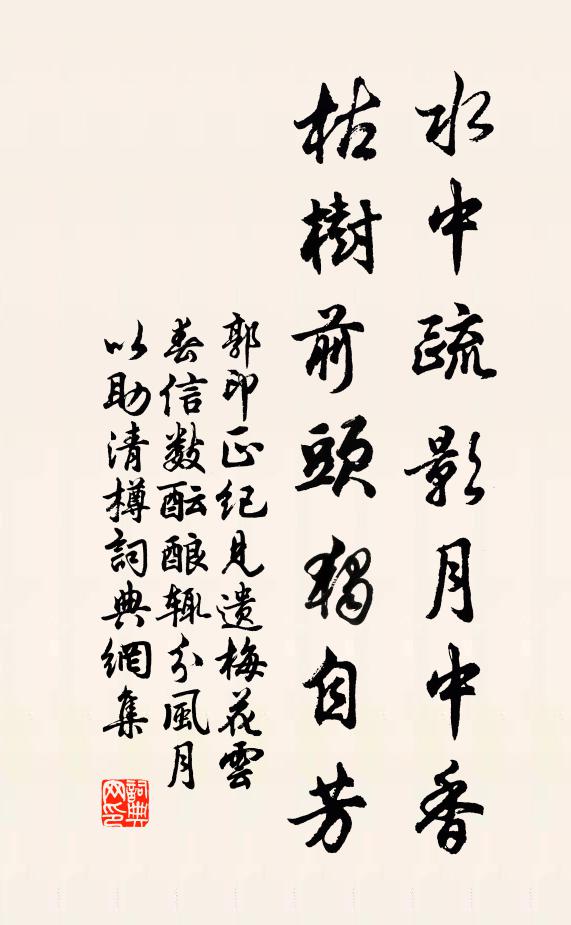 水中疏影月中香
枯樹前頭獨自芳
郭印正紀見遺梅花雲
春信数酝酿辄分風月
以助清樽詞典網集
詞典网印